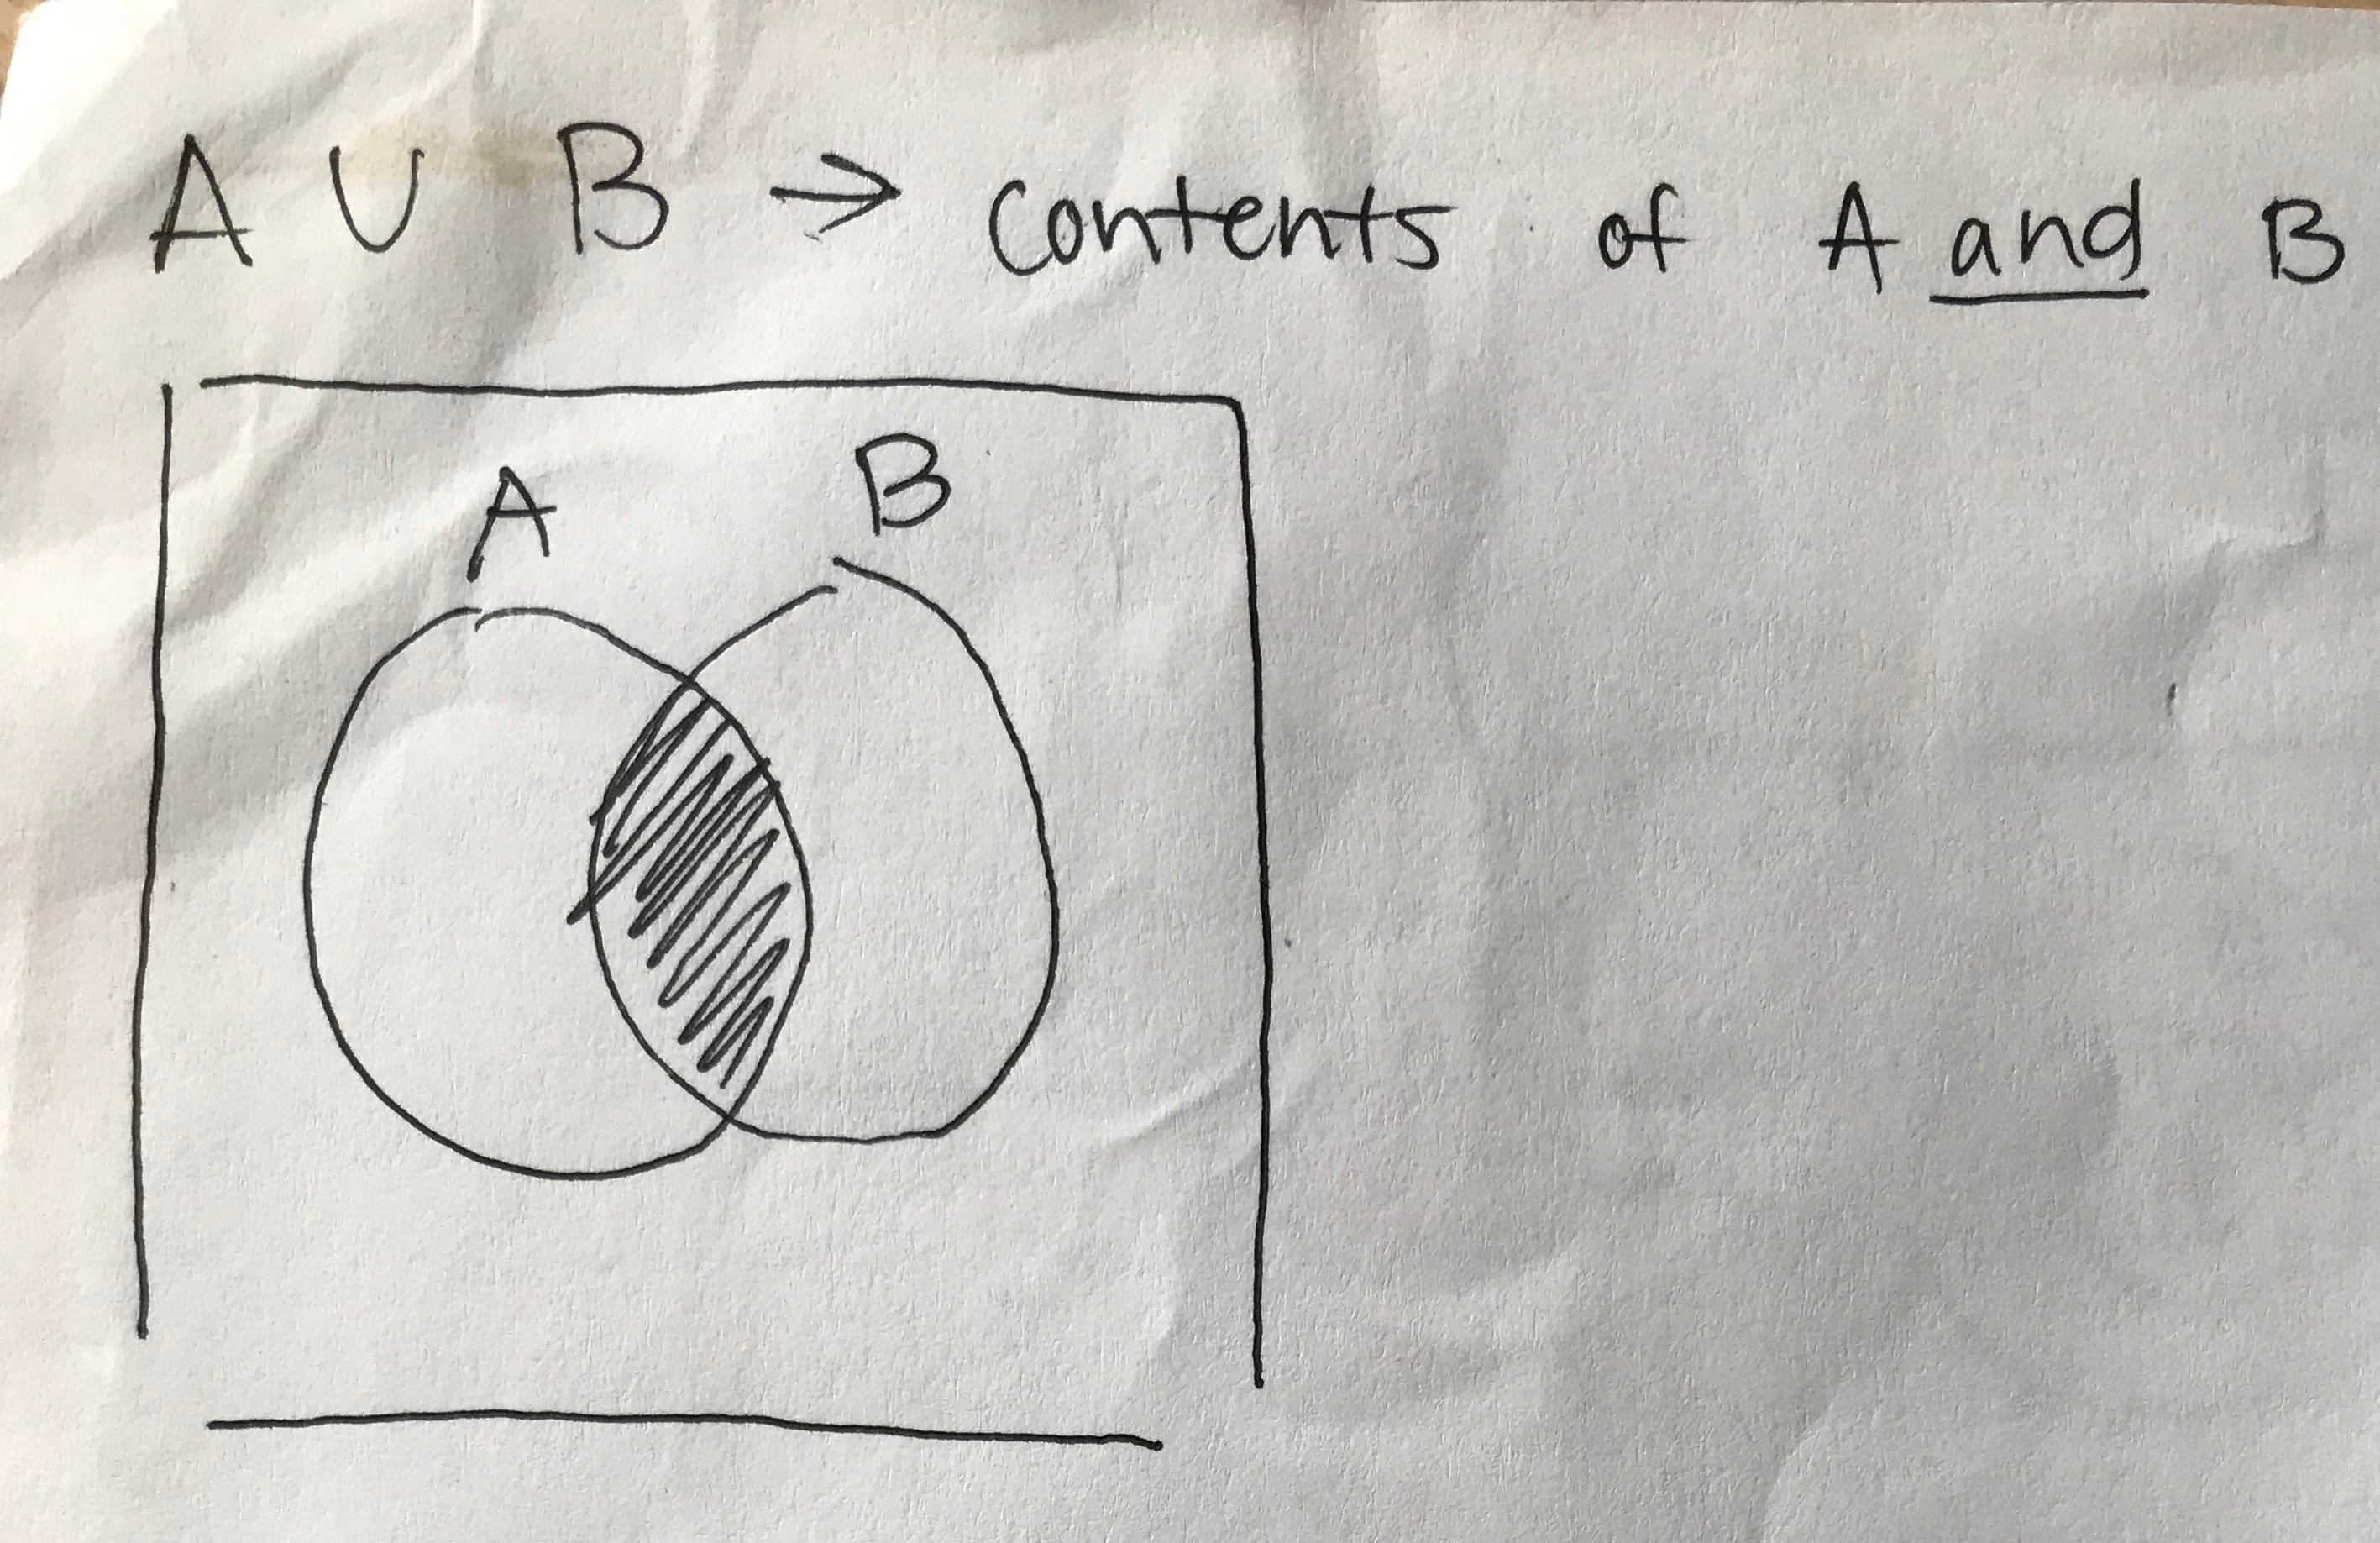 A ∪ B → contents of A and B
A B